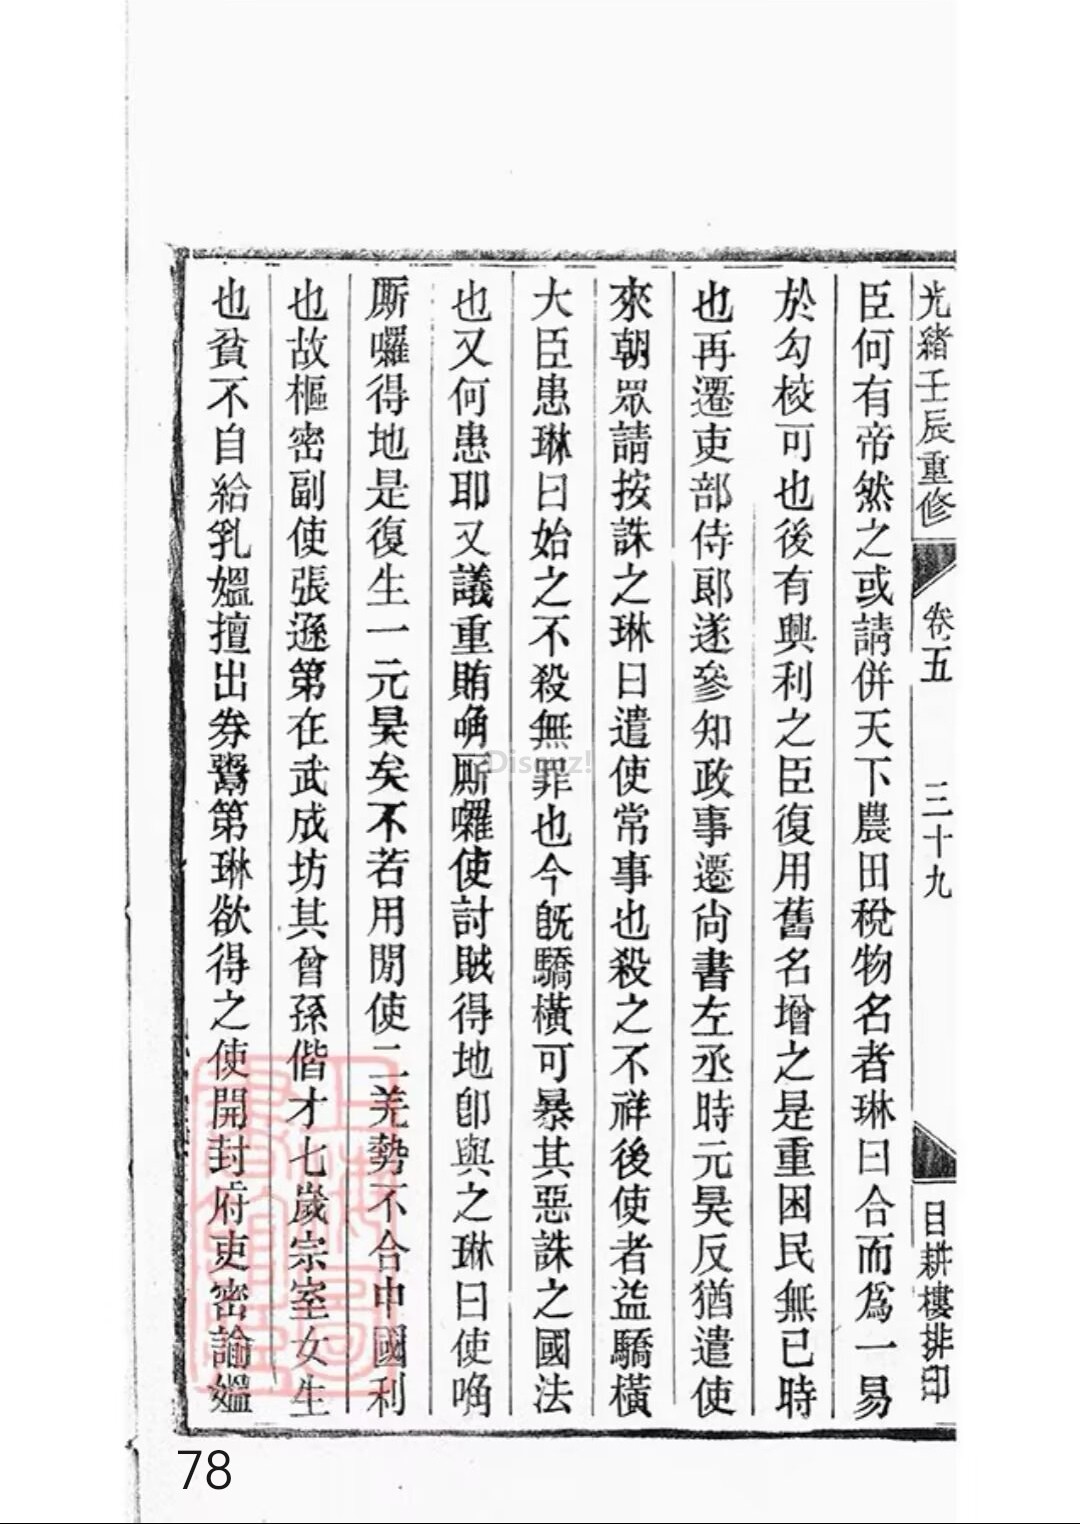 光緒壬辰重修 卷五 三十九 目耕樓排印
臣何有帝然之或請併天下農田稅物名者琳曰合而爲一易
於勾校可也後有興利之臣復用舊名增之是重困民無已時
也再遷吏部侍郎遂參知政事遷尚書左丞時元昊反猶遣使
來朝眾請按誅之琳曰遣使常事也殺之不祥後使者益驕橫
大臣患琳曰始之不殺無罪也今旣驕橫可暴其惡誅之國法
也又何患耶又議重賄唃厮囉使討賊得地卽與之琳曰使唃
厮囉得地是復生一元昊矣不若用閒使二羌勢不合中國利
也故樞密副使張遜第在武成坊其曾孫偕才七歲宗室女生
也貧不自給乳媼擅出券鬻第琳欲得之使開封府吏密諭媼
Discuz!
78